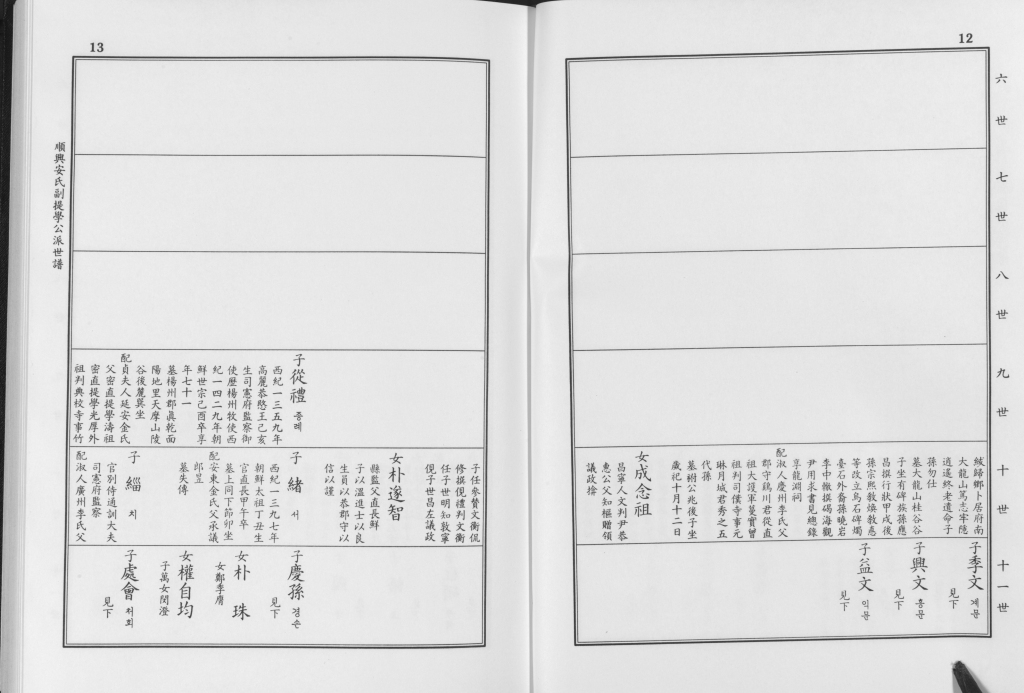 12
六世
七世
八世
九世
十世
十一世
絨歸鄉卜居府南
大龍山篤志牢隱
逍遙終老遺命子
孫勿仕
墓大龍山桂谷谷
子坐有碑族孫應
昌撰行狀甲戌後
孫宗熙教煥教慤
等改立烏石碑燭
臺石外裔孫曉岩
李中轍撰碣海觀
尹用求書見總錄
享龍淵祠
配淑人慶州李氏父
郡守鷄川君從直
祖大護軍蔓實曾
祖判司僕寺事元
琳月城君秀之五
代孫
墓祔公兆後子坐
歲祀十月十二日
女成念祖
昌寧人文判尹恭
惠公父知樞贈領
議政揜
子季文 계문
見下
子興文 흥문
見下
子益文 익문
見下
13
順興安氏副提學公派世譜
子從禮 종례
西紀一三五九年
高麗恭愍王己亥
生司憲府監察御
使歷楊州牧使西
紀一四二九年朝
鮮世宗己酉卒享
年七十一
墓楊州郡眞乾面
陽地里天摩山陵
谷後麓巽坐
配貞夫人延安金氏
父密直提學濤祖
密直提學光厚外
祖判典校寺事竹
子任參贊文衝侃
修撰俔禮判文衝
任子世明知敦寧
俔子世昌左議政
女朴遂智
縣監父直長鮮
子以溫進士以良
生員以恭郡守以
信以謹
子緖 서
西紀一三九七年
朝鮮太祖丁丑生
官直長甲午卒
墓上同下節卯坐
配安東金氏父承議
郎昱
墓失傳
子緇 치
官別侍通訓大夫
司憲府監察
配淑人廣州李氏父
子慶孫 경손
見下
女朴珠
女鄭季膺
女權自均
子萬女閔澄
子處會 처회
見下